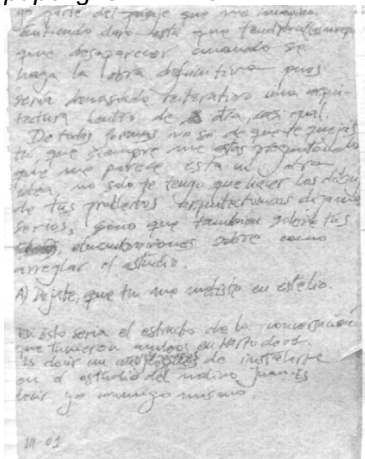 parte del paisaje que me
entiendo claro está que tendrían
que desaparecer cuando se
haga la obra definitiva pues
sería demasiado reiterativo una arqui-
tectura dentro de otra, tal cual.
De todas formas no sé de que te quejas
tú que siempre me estas preguntando
que me parece esta u otra
idea, no solo te tengo que hacer los dibujos
de tus proyectos arquitectonicos
serios, sino que tambien sobre tus
elucubraciones sobre como
arreglar el estudio.
A) Dejate, que tu me metiste en este lio.
Esto seria el extracto de la conversación
que tuvieron amigos
Es decir un antes de instalarse
en el estudio del molino Juan. Es
decir yo conmigo mismo.
01